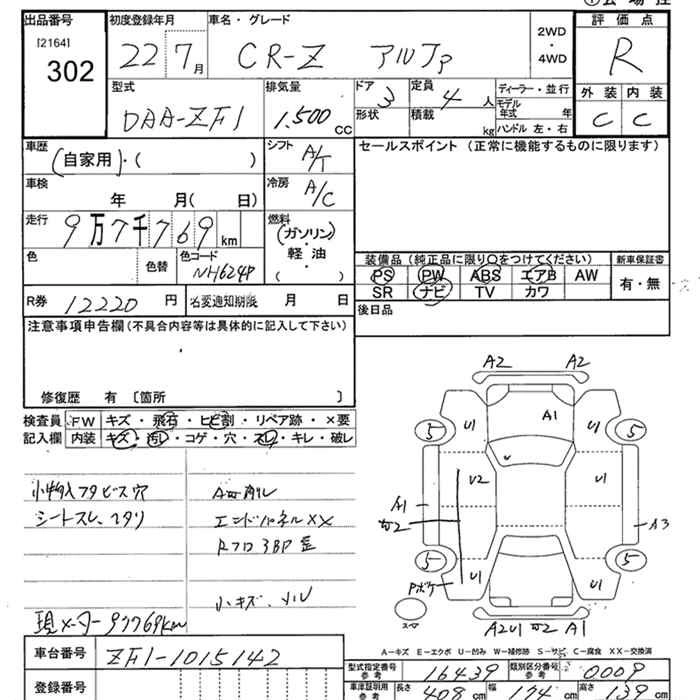 出品番号
[2164]
302
初度登録年月
22 7月
車名・グレード
CR-Z アルファ
2WD
・
4WD
評価点
R
外装 内装
C C
型式
DAA-ZF1
排気量
1.500 cc
ドア 3
形状
定員 4 人
積載 kg
ディーラー・並行
モデル年式 年
ハンドル 左・右
車歴
(自家用)・( )
シフト A/T
セールスポイント (正常に機能するものに限ります)
車検
年 月( 日)
冷房 A/C
走行
9万7千769km
燃料
(ガソリン)
・
軽油
( )
色
色替
色コード
NH624P
装備品 (純正品に限り○をつけてください)
PS PW ABS エアB AW
SR ナビ TV カワ
新車保証書
有・無
R券 12220 円
名変通知期限 月 日
後日品
注意事項申告欄 (不具合内容等は具体的に記入して下さい)
修復歴 有 〔箇所 〕
検査員
記入欄
FW キズ・飛石・ヒビ割・リペア跡・×要
内装 キズ・汚レ・コゲ・穴・スレ・キレ・破レ
小物入フタビス穴
シートスレ、ヘタリ
エンドパネルXX
小キズ、小U
現メーター 97769km
A2 A2
A1
5 U1 U1 5
U2 U1
A1
A3
5 5
Pボケ U1 U1
スペア
A2U1 A1
A-キズ E-エクボ U-凹み W-補修跡 S-サビ C-腐食 XX-交換済
車台番号 ZF1-1015142
登録番号
型式指定番号 参考 16439
類別区分番号 参考 0009
車庫証明用 参考
長さ 408 cm
幅 174 cm
高さ 139 cm